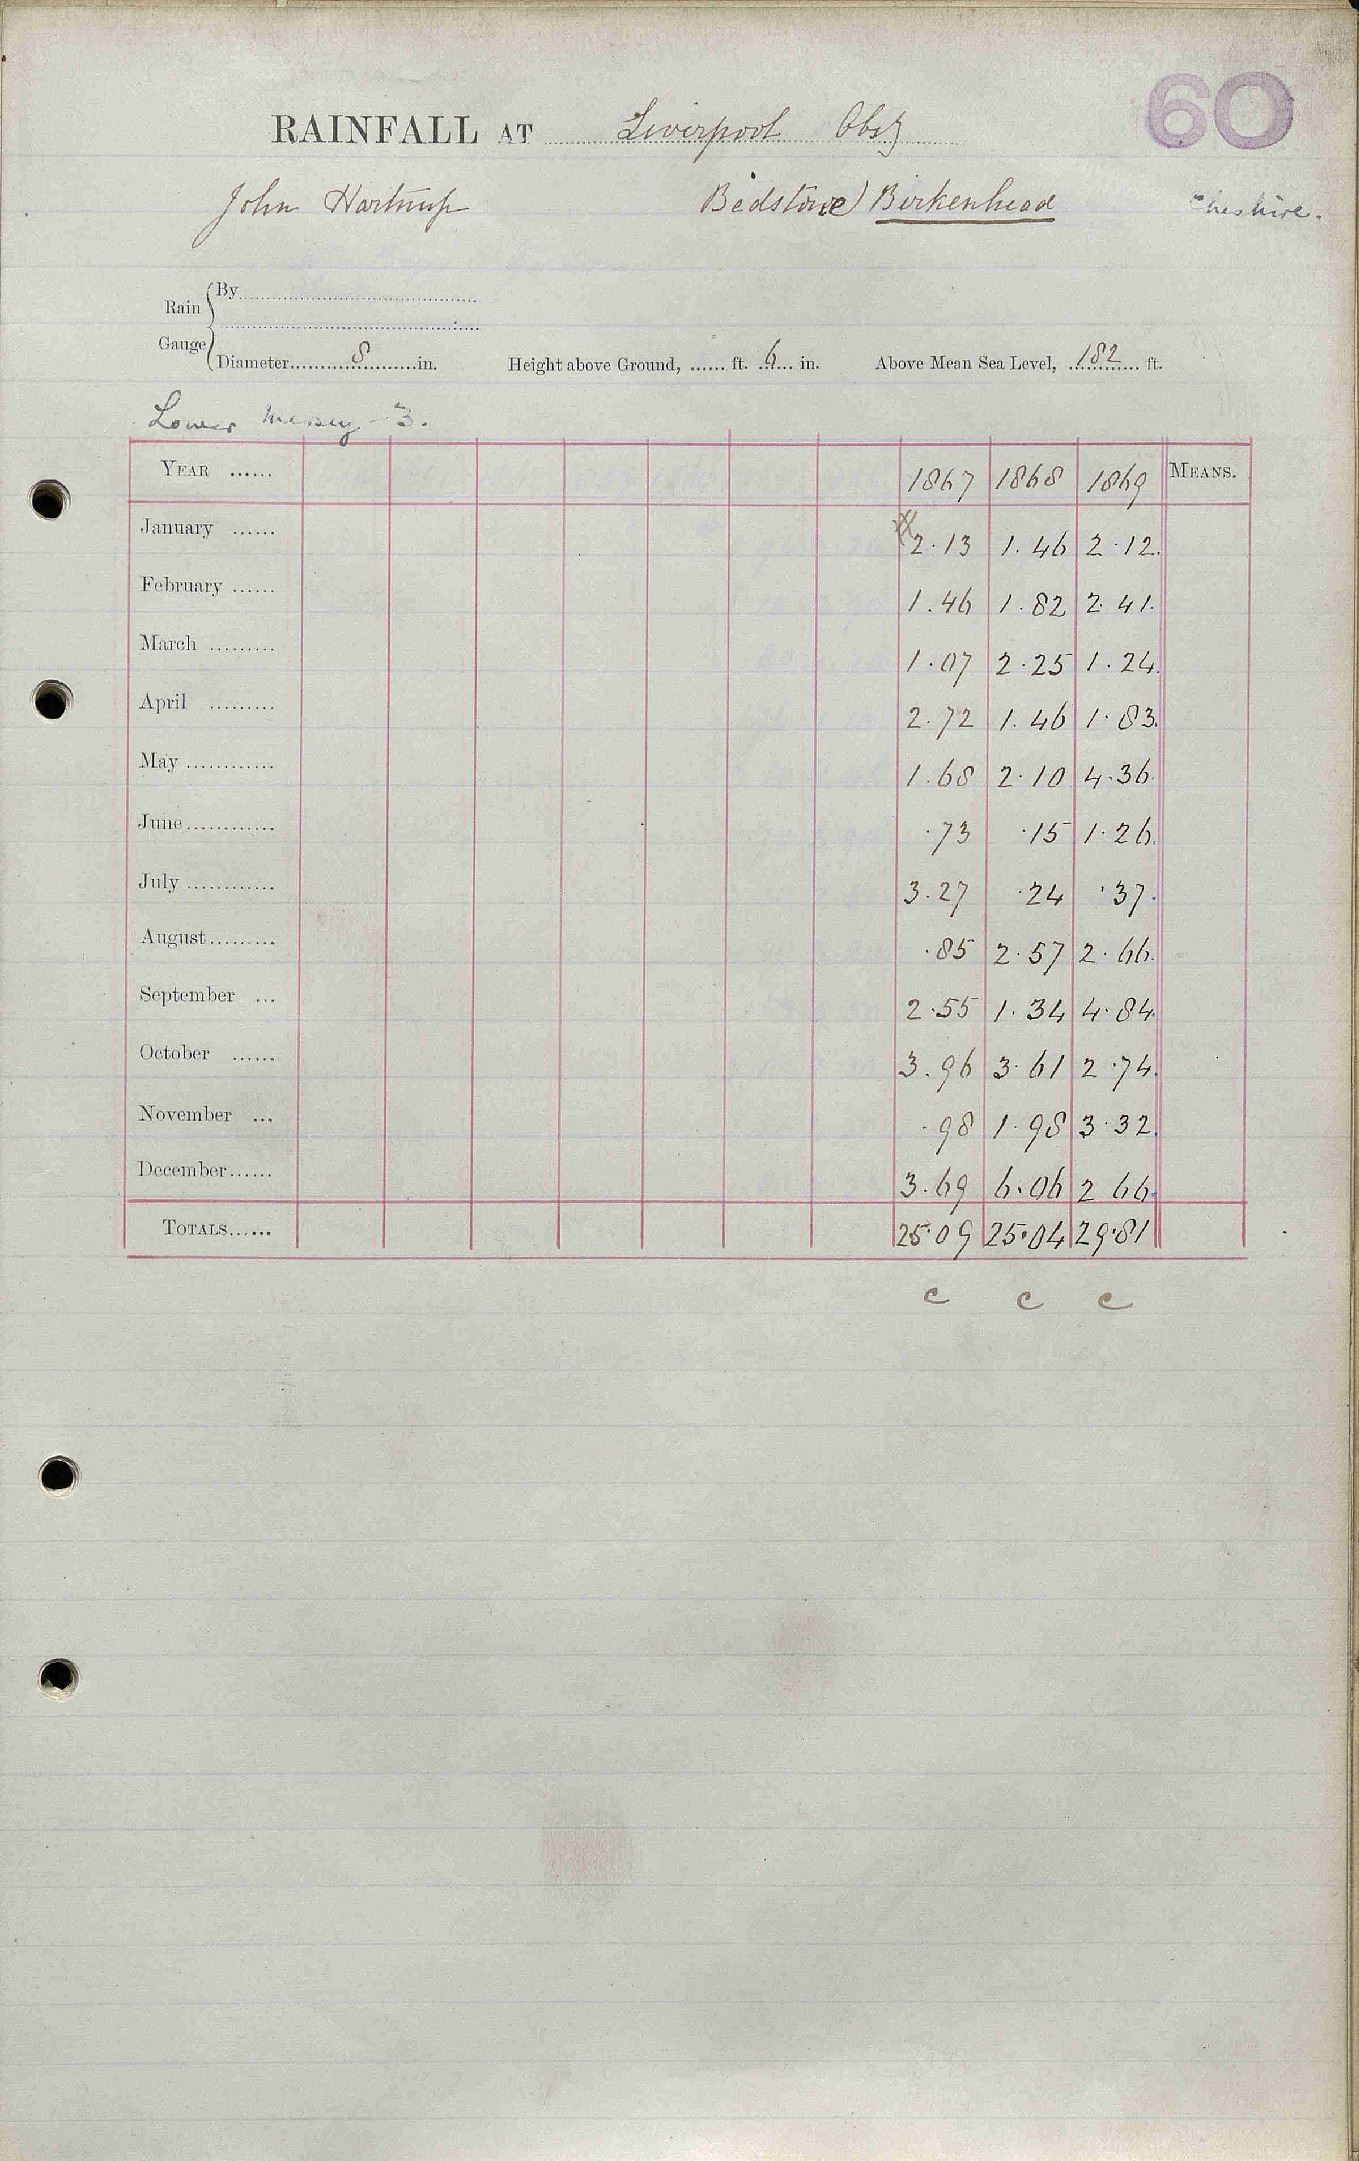 60
RAINFALL AT Liverpool Obsy
John Hartnup Bidstone) Birkenhead Cheshire.
Rain Gauge { By
Diameter 8 in. Height above Ground, ...... ft. 6 in. Above Mean Sea Level, 182 ft.
Lower Mersey - 3.
YEAR ...... 1867 1868 1869 MEANS.
January ...... 2.13 1.46 2.12.
February ...... 1.46 1.82 2.41.
March ......... 1.07 2.25 1.24.
April ......... 2.72 1.46 1.83.
May ............ 1.68 2.10 4.36.
June ............ .73 .15 1.26.
July ............ 3.27 .24 .37.
August ......... .85 2.57 2.66.
September ... 2.55 1.34 4.84.
October ...... 3.96 3.61 2.74.
November ... .98 1.98 3.32.
December ...... 3.69 6.06 2 66.
TOTALS ...... 25.09 25.04 29.81
c c c